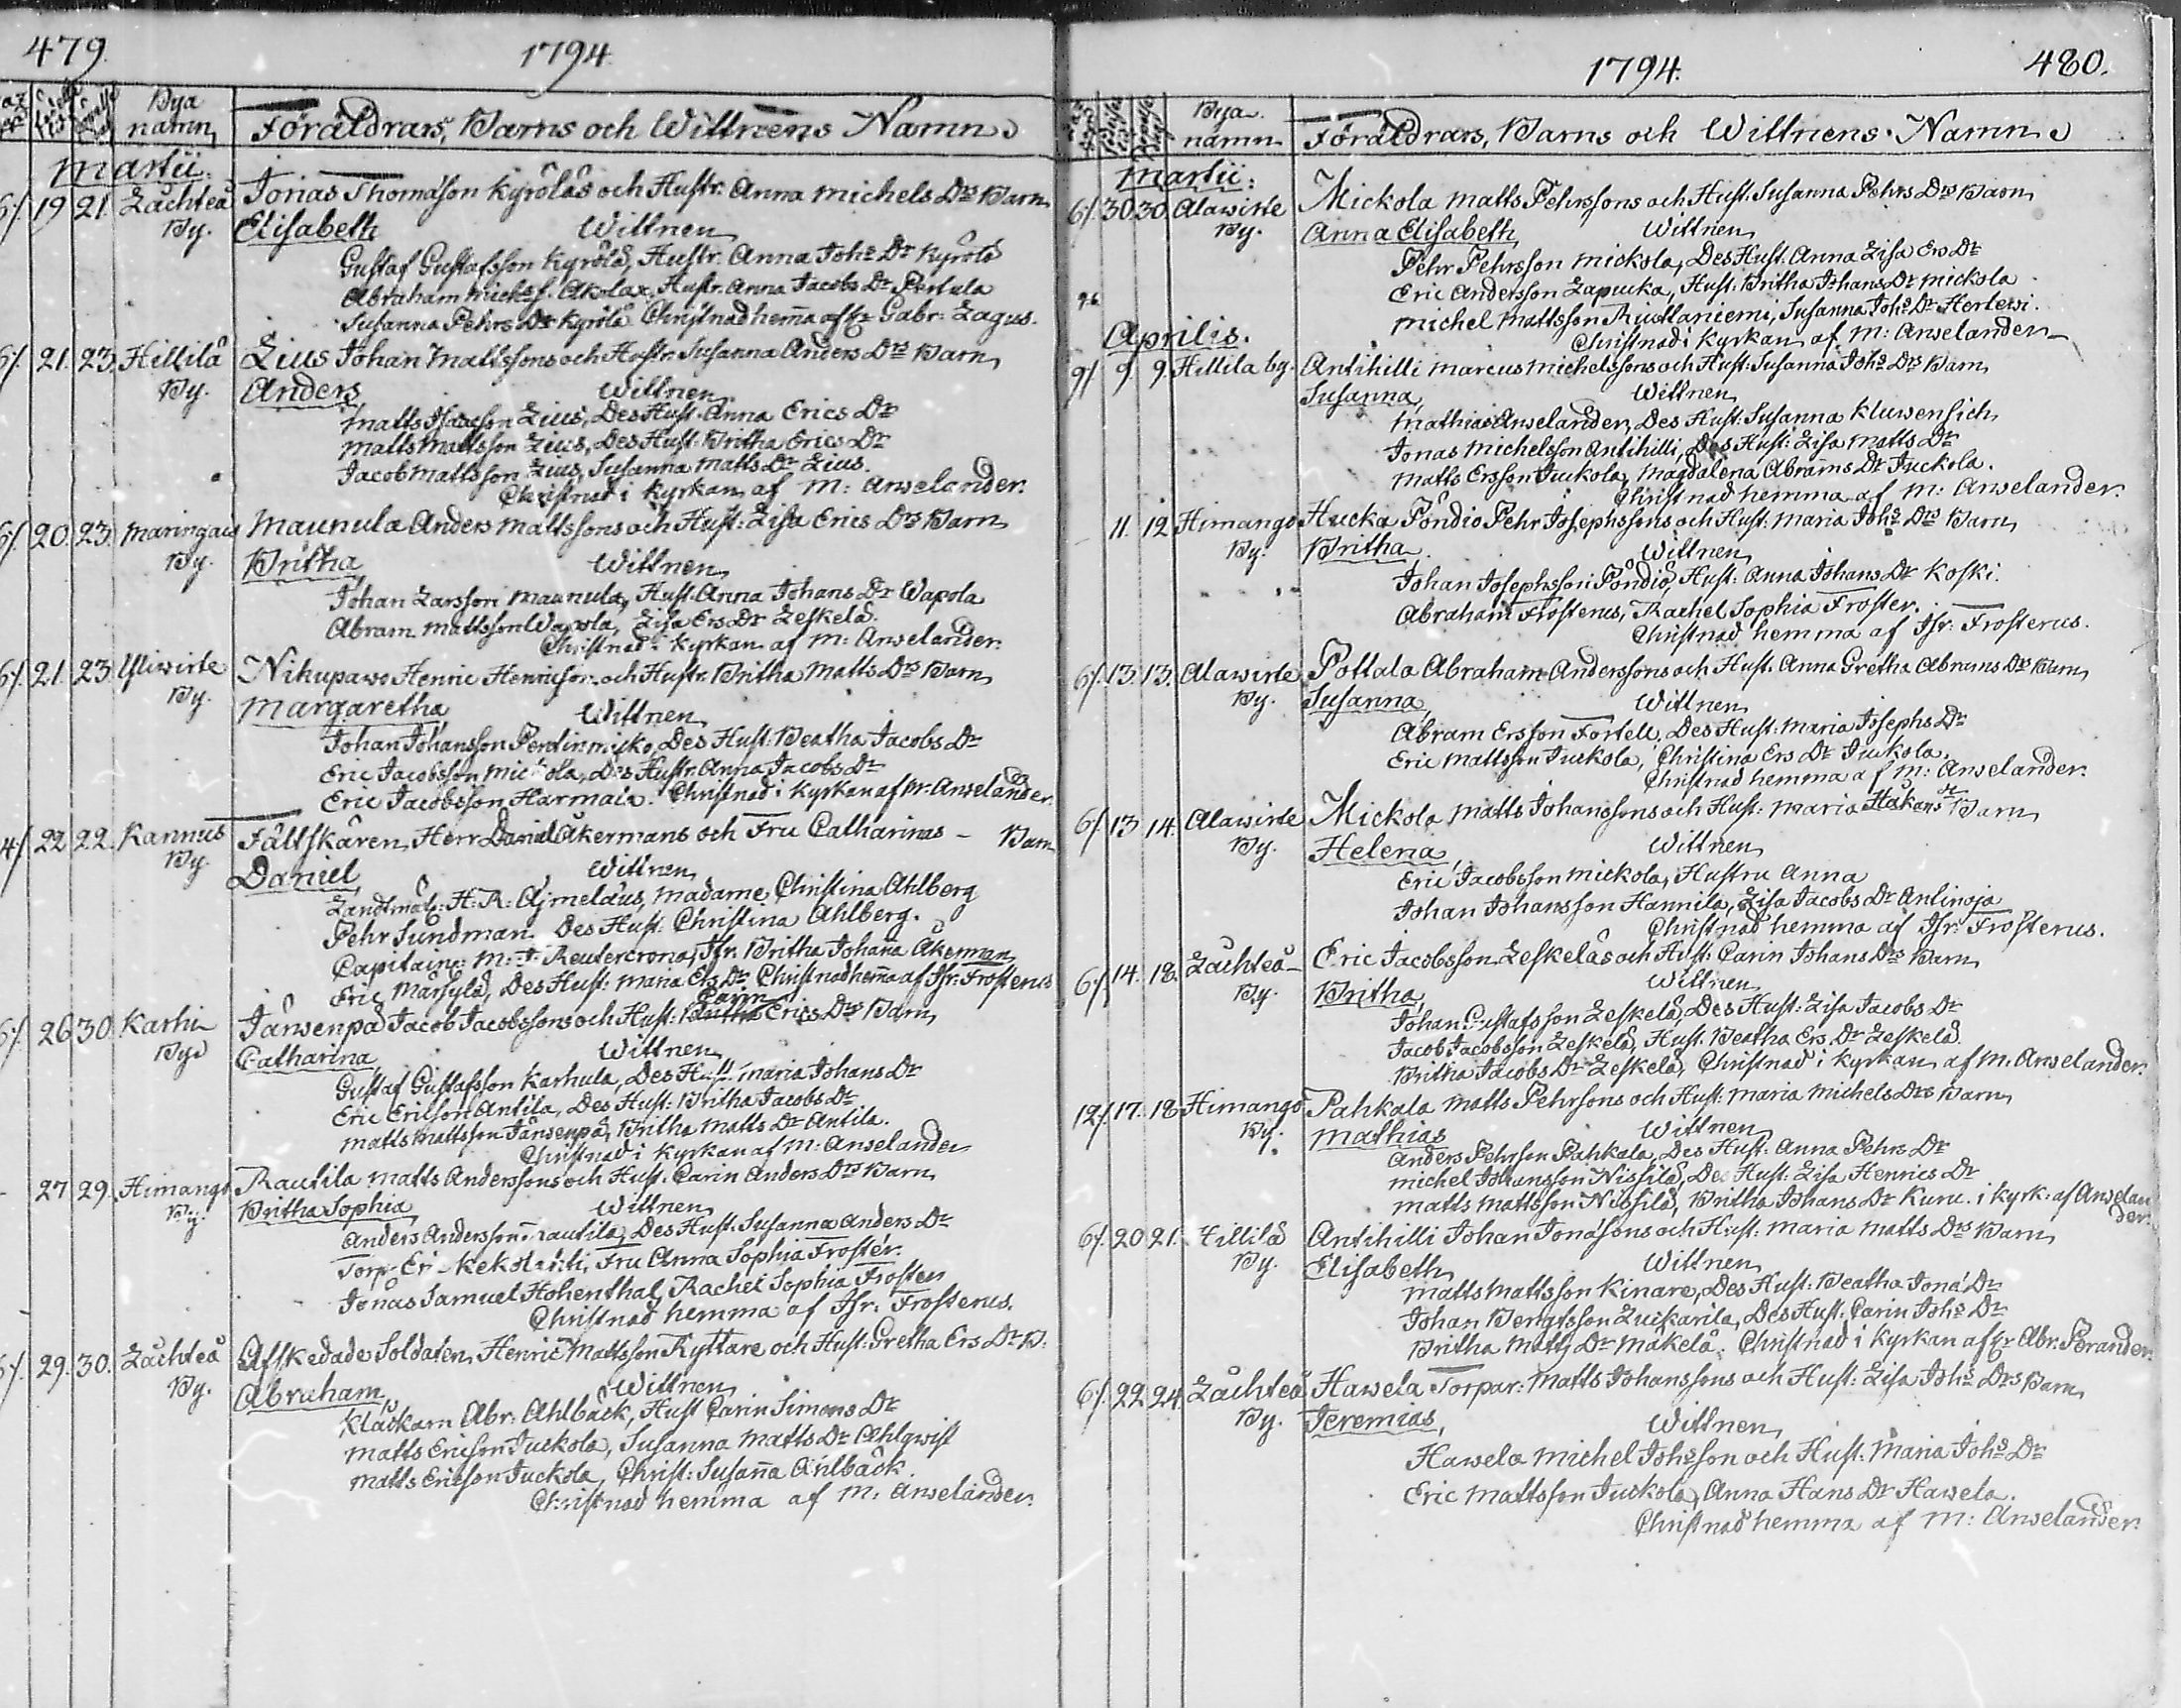 479.
1794.
Bya namn
Föräldrars, Barns och Wittnens Namn
Martii.
6/. 19 21. Lächteå Jonas Thomasson Kyröläs och Hustr. Anna Michels Drs Barn
By. Elisabeth Wittnen
Gustaf Gustafsson Kyrölä, Hustr. Anna Johs Dr Kyrölä
Abraham Micks. Akola, Hustr. Anna Jacobs Dr Pertula
Susanna Pehrs Dr Kyrölä Christnad hema af Gabr: Lagus.
6/. 21. 23. Hillilä Lius Johan Mattssons och Hustr. Susanna Anders Drs Barn
By. Anders Wittnen
Matts Isacsson Lius, Des Hust: Anna Erics Dr
Matts Mattsson Lius, Des Hust: Britha Erics Dr
Jacob Mattsson Lius, Susanna Matts Dr Lius.
Christnad i Kyrkan af M: Anselander.
6/. 20. 23. Maringais Maunula Anders Mattssons och Hust: Lisa Erics Drs Barn
By. Britha Wittnen
Johan Larsson Maunula, Hust. Anna Johans Dr Wapola
Abram Mattsson Wapola, Lisa Ers Dr Leskelä.
Christnad i Kyrkan af M: Anselander.
6/. 21. 23 Yliwirte Nikupawo Henric Henricson och Hustr. Britha Matts Drs Barn
By. Margaretha Wittnen
Johan Johansson Pentinmicko, Des Hust: Beatha Jacobs Dr
Eric Jacobsson Mickola, Des Hustr. Anna Jacobs Dr
Eric Jacobsson Harmala. Christnad i Kyrkan af M: Anselander.
4/ 22 22. Kannus Fältskären Herr Daniel Åkermans och Fru Catharinas - Barn
By. Daniel Wittnen
Landtmät: H: R: Ajmelæus, Madame Christina Ahlberg
Pehr Sundman. Des Hust: Christina Ahlberg.
Capitaine M: F: Reutercrona, Jfr. Britha Johana Åkerman
Eric Märsylä, Des Hust: Maria Ers Dr Christnad hema af Isr: Frosterus
Carin
6/. 26 30. Karhi Jänsenpä Jacob Jacobssons och Hust: Britha Erics Drs Barn
By Catharina Wittnen
Gustaf Gustafsson Karhula, Des Hust Maria Johans Dr
Eric Ericson Antila, Des Hust: Britha Jacobs Dr
Matts Mattsson Jänsenpä, Britha Matts Dr Antila.
Christnad i Kyrkan af M: Anselander
- 27 29. Himango Rautila Matts Anderssons och Hust. Carin Anders Drs Barn
By. Britha Sophia Wittnen
Anders Andersson Rautila, Des Hust. Susanna Anders Dr
Torp Er Fru Anna Sophia Froster.
Jonas Samuel Hohenthal, Rachel Sophia Froster
Christnad hemma af Isr: Frosterus.
6/. 29. 30. Lächteå Afskedade Soldaten Henric Mattsson Ryttare och Hust: Gretha Ers Dr B:
By. Abraham Wittnen
Klackarn Abr: Ahlbäck, Hust Carin Simons Dr
Matts Ericson Juckola, Susanna Matts Dr Ahlqwist
Matts Ericson Juckola, Christ: Susana Ahlbäck.
Christnad hemma af M: Anselander.
1794.
480.
Bya namn
Föräldrars, Barns och Wittnens Namn
Martii:
6/. 30. 30. Alawirte Mickola Matts Pehrssons och Hust: Susanna Pehrs Drs Barn
By. Anna Elisabeth Wittnen
Pehr Pehrsson Mickola, Des Hust. Anna Lisa Ers Dr
Eric Andersson Lapucka, Hust: Britha Johans Dr Mickola
Michel Mattsson Riuttaniemi, Susanna Johs Dr Hertewi.
Christnad i Kyrkan af M: Anselander
Aprilis.
9/ 9. 9. Hillila by. Antihilli Marcus Michelssons och Hust: Susanna Johs Drs Barn
Susanna, Wittnen
Mathias Anselander, Des Hust: Susanna Kluwensich
Jonas Michelsson Antihilli, Des Hust: Lisa Matts Dr
Matts Ersson Juckola, Magdalena Abrams Dr Juckola.
Christnad hemma af M: Anselander.
- 11. 12. Himango Hucka Pöndio Pehr Josephssons och Hust: Maria Johs Drs Barn
By. Britha Wittnen
Johan Josephsson Pöndiö, Hust: Anna Johans Dr Koski.
Abraham Frosterus, Rachel Sophia Froster.
Christnad hemma af Isr: Frosterus.
6/. 13. 13. Alawirte Pottala Abraham Anderssons och Hust. Anna Gretha Abrams Drs Barn
By. Susanna, Wittnen
Abram Ersson Fortell, Des Hust: Maria Josephs Dr
Eric Mattsson Juckola, Christina Ers Dr Juckola.
Christnad hemma af M: Anselander.
6/. 13 14. Alawirte Mickola Matts Johanssons och Hust: Maria Håkans Dr Barn
By. Helena Wittnen
Eric Jacobsson Mickola, Hustru Anna
Johan Johansson Hannila, Lisa Jacobs Dr Antinoja
Christnad hemma af Isr: Frosterus.
6/. 14. 18. Lächteå Eric Jacobsson Leskeläs och Hust: Carin Johans Drs Barn
By. Britha, Wittnen
Johan Gustafsson Leskelä, Des Hust: Lisa Jacobs Dr
Jacob Jacobsson Leskelä, Hust. Beatha Ers Dr Leskelä.
Britha Jacobs Dr Leskelä, Christnad i Kyrkan af M. Anselander.
12/. 17. 18. Himango Pahkala Matts Pehrsons och Hust: Maria Michels Drs Barn
By. Mathias Wittnen
Anders Pehrson Pahkala, Des Hust: Anna Pehrs Dr
Michel Johansson Nissilä, Des Hust: Lisa Henrics Dr
Matts Mattsson Nissilä, Britha Johans Dr Kuru. i kyrk: af Anselander.
6/. 20 21. Hillilä Antihilli Johan Jonäsons och Hust: Maria Matts Drs Barn
By. Elisabeth Wittnen
Matts Mattsson Kinare, Des Hust: Beatha Jona Dr
Johan Bengtsson Luikarila, Des Hust: Carin Johs Dr
Britha Matts Dr Mäkelä. Christnad i Kyrkan af Abr. Perander.
6/. 22. 24. Lächteå Hawela Torpar: Matts Johanssons och Hust: Lisa Johs Drs Barn
By. Jeremias, Wittnen
Hawela Michel Johsson och Hust: Maria Johs Dr
Eric Mattsson Juckola, Anna Hans Dr Hawela.
Christnad hemma af M: Anselander.